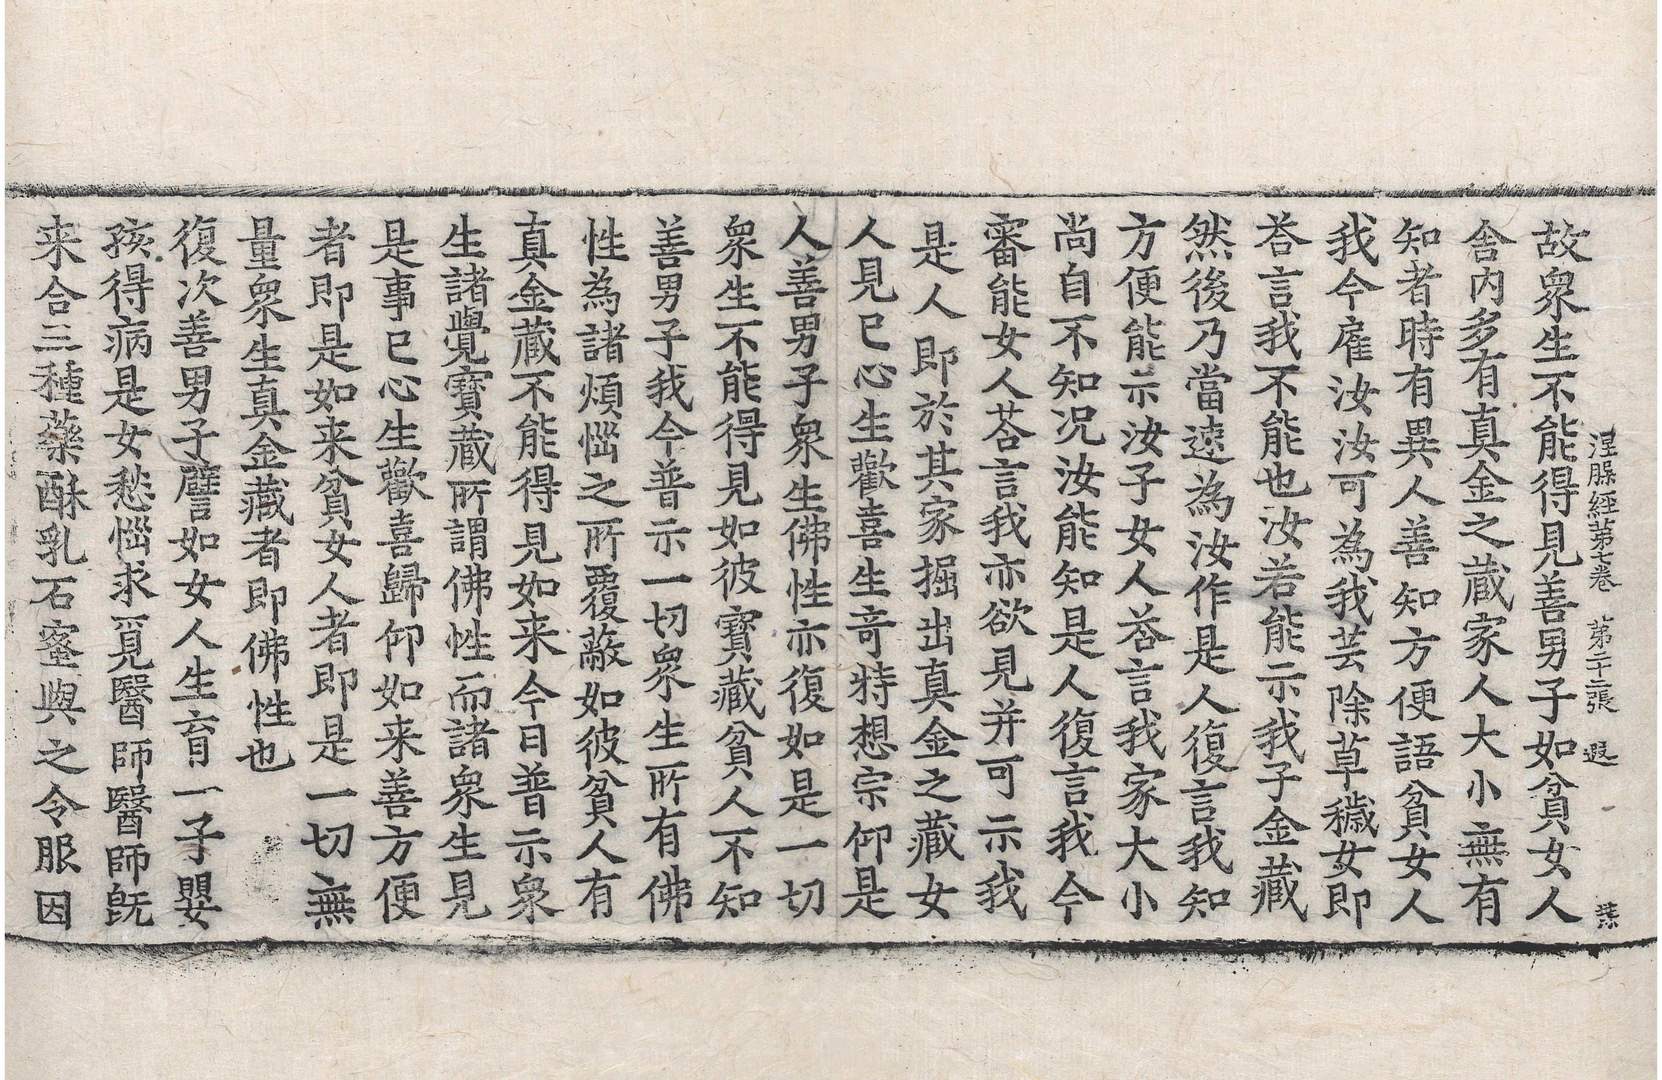 涅槃經第七卷 第二十二張 遐
故衆生不能得見善男子如貧女人
舍內多有真金之藏家人大小無有
知者時有異人善知方便語貧女人
我今雇汝汝可為我芸除草穢女即
荅言我不能也汝若能示我子金藏
然後乃當速為汝作是人復言我知
方便能示汝子女人荅言我家大小
尚自不知况汝能知是人復言我今
審能女人荅言我亦欲見并可示我
是人即於其家掘出真金之藏女
人見已心生歡喜生奇特想宗仰是
人善男子衆生佛性亦復如是一切
衆生不能得見如彼寶藏貧人不知
善男子我今普示一切衆生所有佛
性為諸煩惱之所覆蔽如彼貧人有
真金藏不能得見如来今日普示衆
生諸覺寶藏所謂佛性而諸衆生見
是事已心生歡喜歸仰如来善方便
者即是如来貧女人者即是一切無
量衆生真金藏者即佛性也
復次善男子譬如女人生育一子嬰
孩得病是女愁惱求覓醫師醫師旣
来合三種藥酥乳石蜜與之令服因